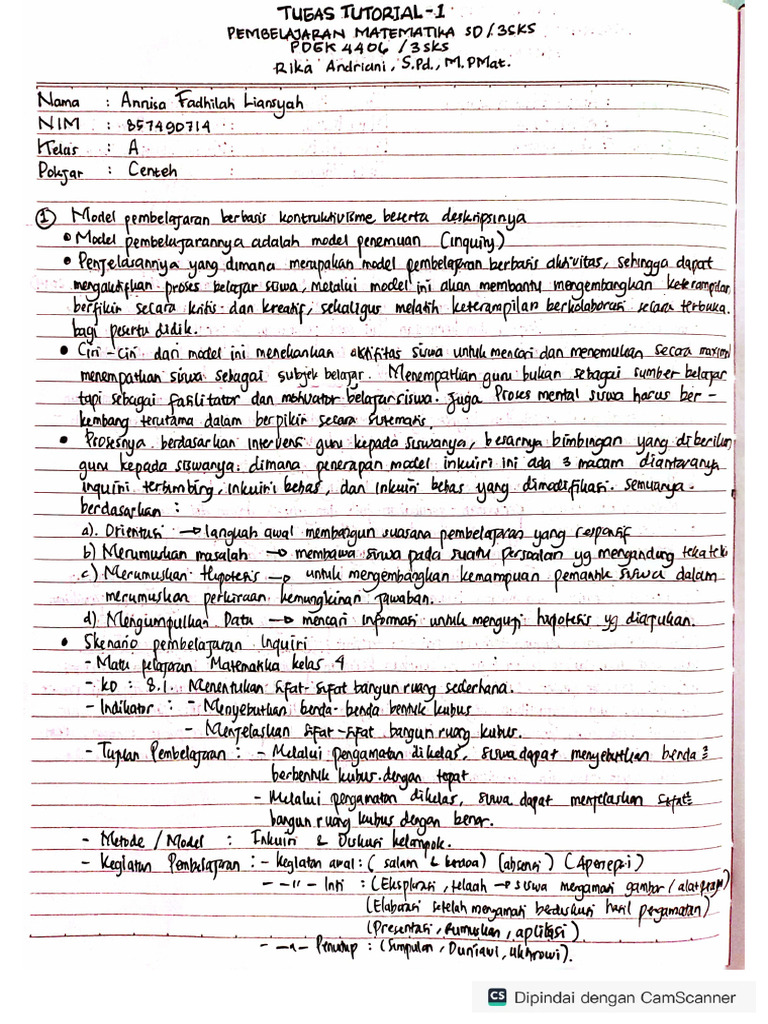 TUGAS TUTORIAL-1
PEMBELAJARAN MATEMATIKA SD/3SKS
PDGK 4406 /3SKS
Rika Andriani, S.Pd., M.PMat.
Nama : Annisa Fadhilah Liansyah
NIM : 857490714
Kelas : A
Pokjar : Centeh
① Model pembelajaran berbasis kontruktivisme beserta deskripsinya
• Model pembelajarannya adalah model penemuan (inquiry)
• Penjelasannya yang dimana merupakan model pembelajaran berbasis aktivitas, sehingga dapat
mengaktifkan proses belajar siswa, melalui model ini akan membantu mengembangkan keterampilan
berfikir secara kritis dan kreatif, sekaligus melatih keterampilan berkolaborasi secara terbuka
bagi peserta didik.
• Ciri-Ciri dari model ini menekankan aktifitas siswa untuk mencari dan menemukan secara maximal
menempatkan siswa sebagai subjek belajar. Menempatkan guru bukan sebagai sumber belajar
tapi sebagai fasilitator dan motivator belajar siswa. Juga Proses mental siswa harus ber-
kembang terutama dalam berpikir secara sistematis.
• Prosesnya berdasarkan intervensi guru kepada siswanya, besarnya bimbingan yang diberikan
guru kepada siswanya. dimana penerapan model inkuiri ini ada 3 macam diantaranya
inquiri terbimbing, inkuiri bebas, dan inkuiri bebas yang dimodifikasi. semuanya
berdasarkan :
a). Orientasi → langkah awal membangun suasana pembelajaran yang responsif
b) Merumuskan masalah → membawa siswa pada suatu persoalan yg mengandung teka teki
c) Merumuskan Hypotesis → untuk mengembangkan kemampuan pemantik siswa dalam
merumuskan perkiraan kemungkinan jawaban.
d) Mengumpulkan Data → mencari informasi untuk menguji hipotesis yg diajukan.
• Skenario pembelajaran Inquiri
- Mata pelajaran Matematika kelas 4
- KD : 8.1. Menentukan sifat-sifat bangun ruang sederhana.
- Indikator : - Menyebutkan benda-benda bentuk kubus
- Menjelaskan sifat-sifat bangun ruang kubus.
- Tujuan Pembelajaran : - Melalui pengamatan dikelas, siswa dapat menyebutkan benda²
berbentuk kubus dengan tepat
- Melalui pengamatan dikelas, siswa dapat menjelaskan sifat²
bangun ruang kubus dengan benar.
- Metode / Model : Inkuiri & Diskusi kelompok.
- Kegiatan Pembelajaran : - kegiatan awal : (salam & berdoa) (absensi) (Apersepsi)
- -"- Inti : (Eksplorasi, telaah → siswa mengamati gambar/alat peraga)
(Elaborasi setelah mengamati berdiskusi hasil pengamatan)
(Presentasi, Rumuskan, aplikasi)
- -"- Penutup : (Simpulan, Duniawi, ukhrowi).
CS Dipindai dengan CamScanner